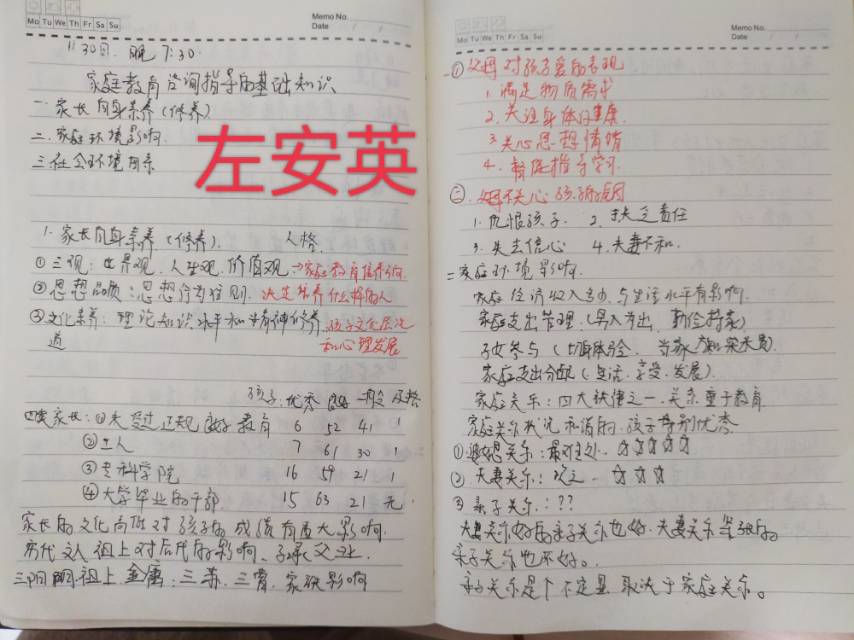 Mo Tu We Th Fr Sa Su
Memo No.
Date / /
11.30日. 晚 7:30.
家庭教育咨询指导的基础知识
一 家长自身素养(修养)
二. 家庭环境影响.
三 社会环境因素
左安英
1. 家长自身素养(修养). 人格
①三观: 世界观. 人生观. 价值观→家庭教育培养方向
②思想品质: 思想行为准则. 决定培养什么样的人
③文化素养: 理论知识水平和精神修养. 孩子文化层次
道 和心理发展
孩子:优秀 良好 一般 及格
四类家长: ①未受过正规良好教育 6 52 41 1
②工人 7 61 30 1
③专科学院 16 59 21 1
④大学毕业的干部. 15 63 21 无.
家长的文化高低对孩子的成绩有重大影响.
历代文人祖上对后代的影响、子承父业.
王阳明.祖上.金庸:三苏.三曹.家族影响
Mo Tu We Th Fr Sa Su
Memo No.
Date / /
①父母对孩子爱的表现
1. 满足物质需求
2. 关注身体的健康.
3 关心思想情绪
4. 督促指导学习.
②.父母不关心孩子的原因
1. 仇恨孩子. 2. 缺乏责任
3. 失去信心 4. 夫妻不和.
二 家庭环境影响.
家庭经济收入多少.与生活水平有影响.
家庭支出管理.(
子女参与(切身体验.
家庭支出分配(生活.享受.发展).
家庭关系:四大铁律之一.关系重于教育.
家庭关系状况和谐的.孩子特别优秀
①婆媳关系:最难处. ☆☆☆☆☆
②.夫妻关系:次之. ☆☆☆
③亲子关系.:??
夫妻关系好的亲子关系也好.夫妻关系
亲子关系也不好。
亲子关系是个不定量.取决于家庭关系。